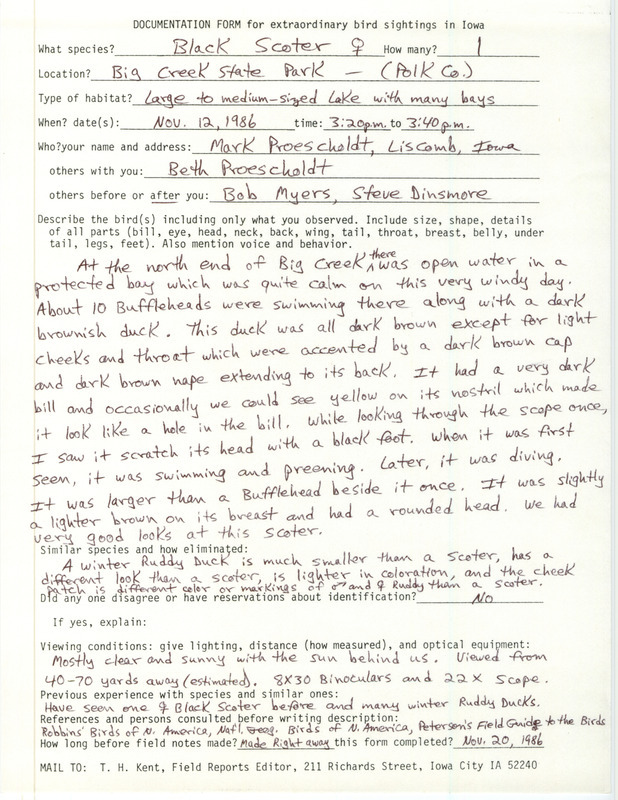 DOCUMENTATION FORM for extraordinary bird sightings in Iowa
What species? Black Scoter ♀ How many? 1
Location? Big Creek State Park — (Polk Co.)
Type of habitat? Large to medium-sized Lake with many bays
When? date(s): Nov. 12, 1986 time: 3:20p.m. to 3:40p.m.
Who?your name and address: Mark Proescholdt, Liscomb, Iowa
others with you: Beth Proescholdt
others before or after you: Bob Myers, Steve Dinsmore
Describe the bird(s) including only what you observed. Include size, shape, details
of all parts (bill, eye, head, neck, back, wing, tail, throat, breast, belly, under
tail, legs, feet). Also mention voice and behavior.
At the north end of Big Creek there was open water in a
protected bay which was quite calm on this very windy day.
About 10 Buffleheads were swimming there along with a dark
brownish duck. This duck was all dark brown except for light
cheeks and throat which were accented by a dark brown cap
and dark brown nape extending to its back. It had a very dark
bill and occasionally we could see yellow on its nostril which made
it look like a hole in the bill. While looking through the scope once,
I saw it scratch its head with a black foot. When it was first
seen, it was swimming and preening. Later, it was diving.
It was larger than a Bufflehead beside it once. It was slightly
a lighter brown on its breast and had a rounded head. We had
very good looks at this scoter.
Similar species and how eliminated:
A winter Ruddy Duck is much smaller than a scoter, has a
different look than a scoter, is lighter in coloration, and the cheek
patch is different color or markings of ♂ and ♀ Ruddy than a scoter.
Did any one disagree or have reservations about identification? No
If yes, explain:
Viewing conditions: give lighting, distance (how measured), and optical equipment:
Mostly clear and sunny with the sun behind us. Viewed from
40-70 yards away (estimated). 8X30 Binoculars and 22X Scope.
Previous experience with species and similar ones:
Have seen one ♀ Black Scoter before and many winter Ruddy Ducks.
References and persons consulted before writing description:
Robbins' Birds of N. America, Natl. Geog. Birds of N. America, Peterson's Field Guide to the Birds
How long before field notes made? Made Right away this form completed? Nov. 20, 1986
MAIL TO: T. H. Kent, Field Reports Editor, 211 Richards Street, Iowa City IA 52240